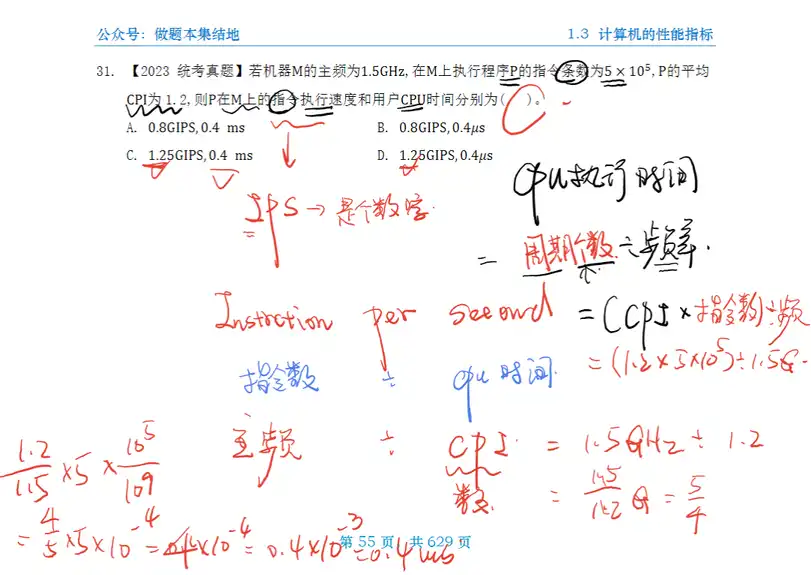 公众号：做题本集结地 1.3 计算机的性能指标
31. 【2023 统考真题】若机器M的主频为1.5GHz, 在M上执行程序P的指令条数为5 × 10⁵, P的平均
CPI为 1.2, 则P在M上的指令执行速度和用户CPU时间分别为( )。
A. 0.8GIPS, 0.4 ms B. 0.8GIPS, 0.4μs
C. 1.25GIPS, 0.4 ms D. 1.25GIPS, 0.4μs
cpu执行时间
IPS → 是个数字.
= 周期个数 ÷ 频率.
Instrction per second = (CPI × 指令数) ÷ 频
指令数 ÷ cpu 时间. = (1.2 × 5 × 10⁵) ÷ 1.5G.
主频 ÷ CPI. = 1.5GHz ÷ 1.2
1.2/1.5 × 5 × 10⁵/10⁹
数. = 1.5/1.2 G = 5/4
= 4/5 × 5 × 10⁻⁴ = 4 × 10⁻⁴ = 0.4 × 10⁻³ = 0.4 ms
第 55 页 共 629 页